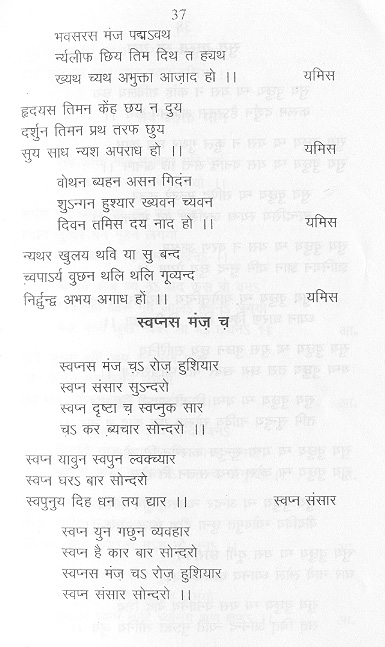 37
भवसरस मंज़ पद्मऽवथ
र्न्यलीफ छिय तिम दिथ त ह्यथ
ख्यथ च्यथ अमुक्ता आज़ाद हो ।। यमिस
हृदयस तिमन केंह छय न दुय
दर्शुन तिमन प्रथ तरफ छुय
सुय साध न्यश अपराध हो ।। यमिस
वोथन ब्यहन असन गिदंन
शुऽन्गन हुश्यार ख्यवन च्यवन
दिवन तमिस दय नाद हो ।। यमिस
न्यथर खुलय थवि या सु बन्द
च्वपाऽर्य वुछन थलि थलि गूव्यन्द
निर्द्वन्द्व अभय अगाध हों ।। यमिस
स्वप्नस मंज़ च़
स्वप्नस मंज़ च़ऽ रोज़ हुशियार
स्वप्न संसार सुऽन्दरो
स्वप्न दृष्टा च़ स्वप्नुक सार
चऽ कर ब्यचार सोन्दरो ।।
स्वप्न यावुन स्वपुन ल्वक्च्यार
स्वप्न घरऽ बार सोन्दरो
स्वपुनुय दिह धन तय द्यार ।। स्वप्न संसार
स्वप्न युन गछुन व्यवहार
स्वप्न है कार बार सोन्दरो
स्वप्नस मंज़ चऽ रोज़ हुशियार
स्वप्न संसार सोन्दरो ।।